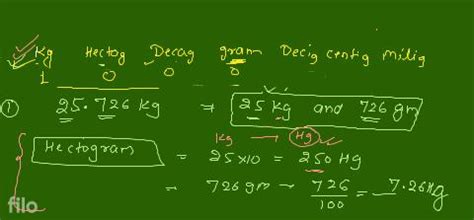 Kg Hectog Decag gram Decig centig milig
1 0 0 0
① 25.726 kg ⇒ 25 kg and 726 gm
kg → Hg
Hectogram = 25×10 = 250 Hg
= 726 gm → 726/100 = 7.26 Hg
filo